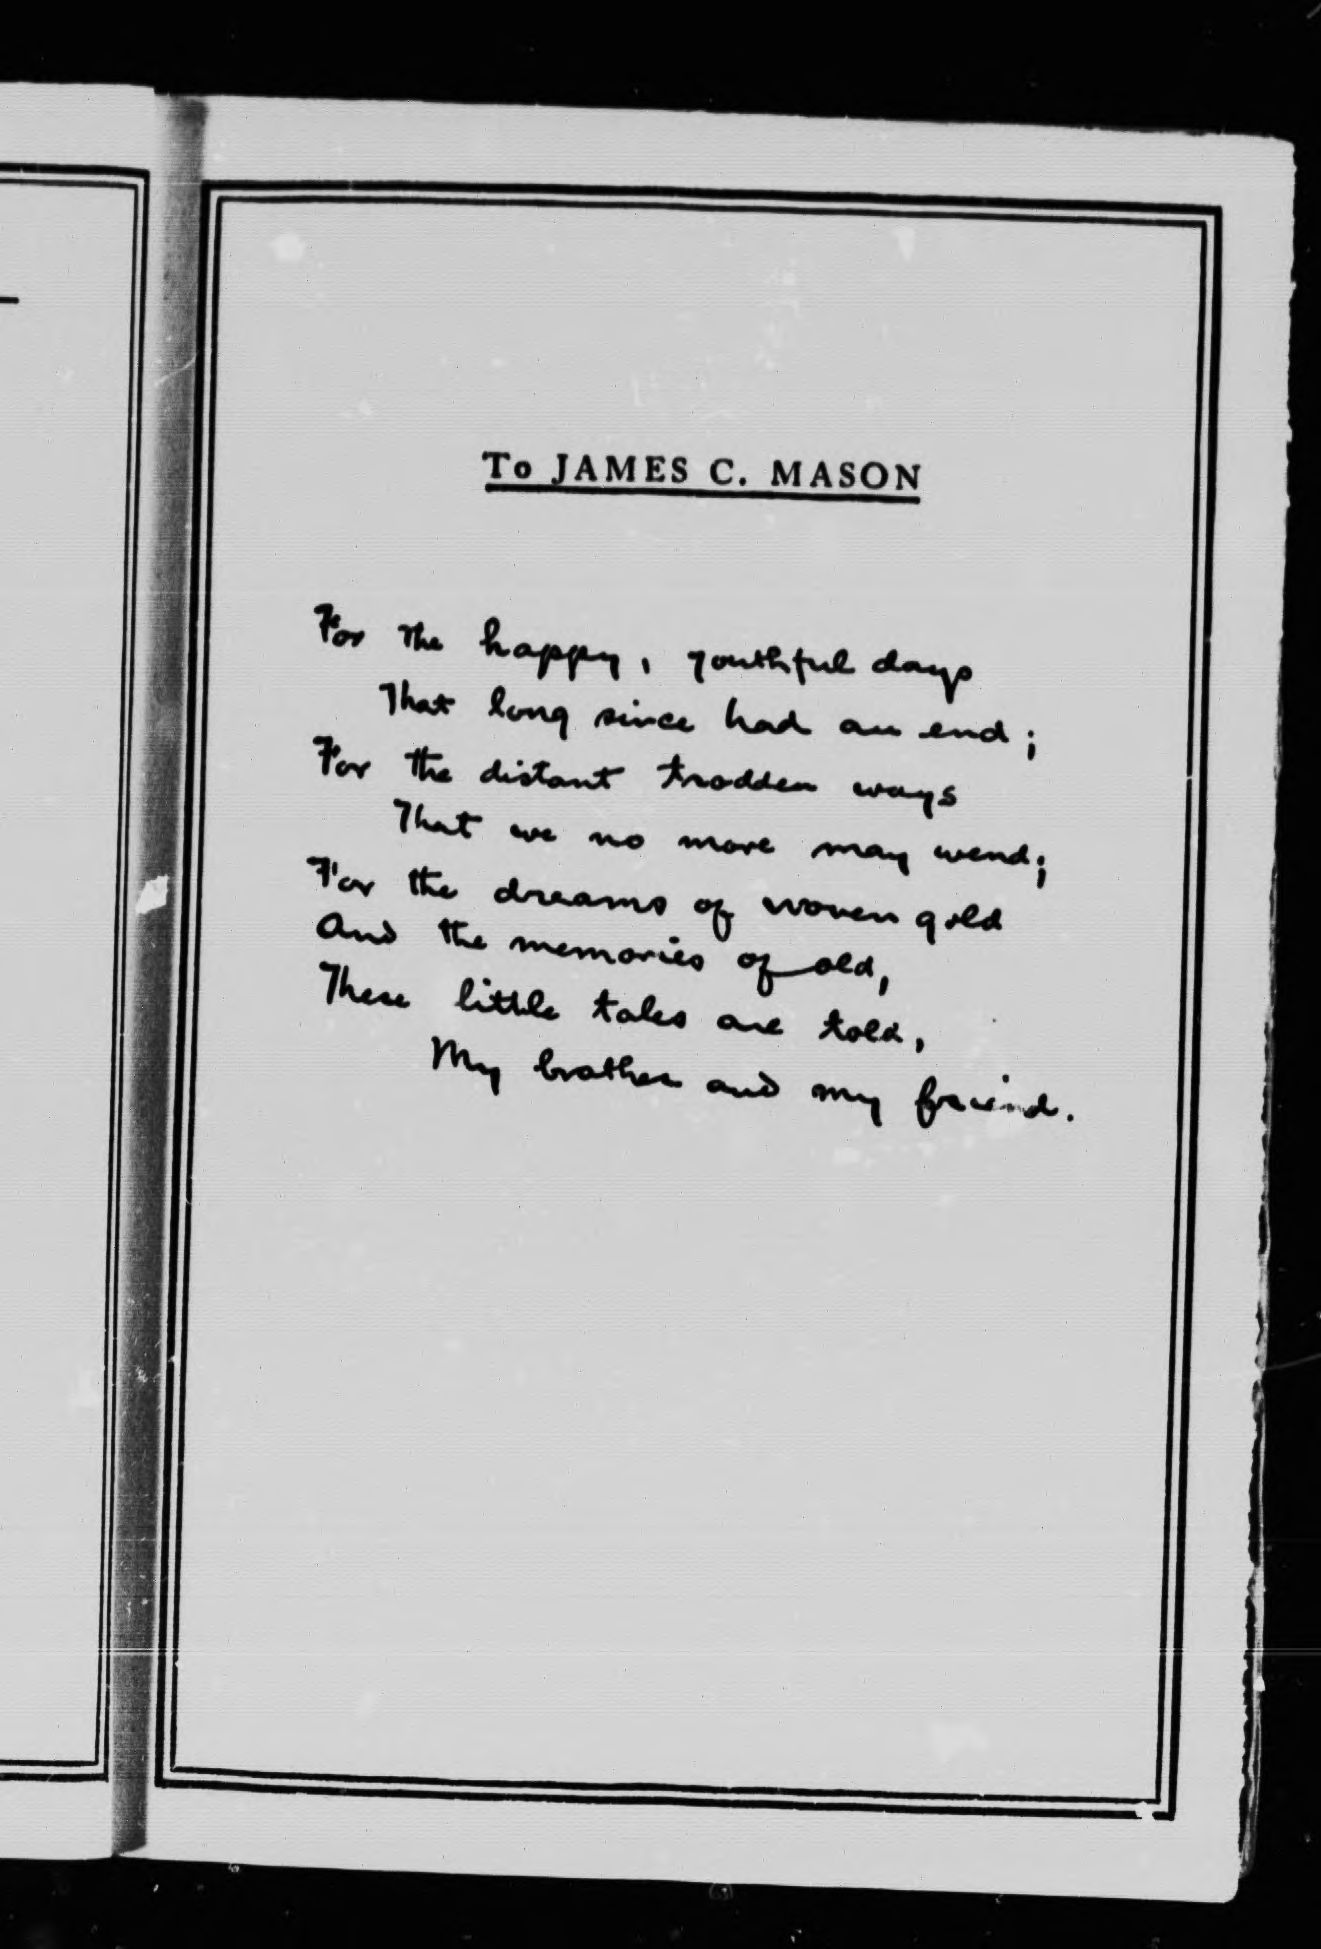 To JAMES C. MASON
For the happy, youthful days
That long since had an end;
For the distant trodden ways
That we no more may wend;
For the dreams of woven gold
And the memories of old,
These little tales are told,
My brother and my friend.